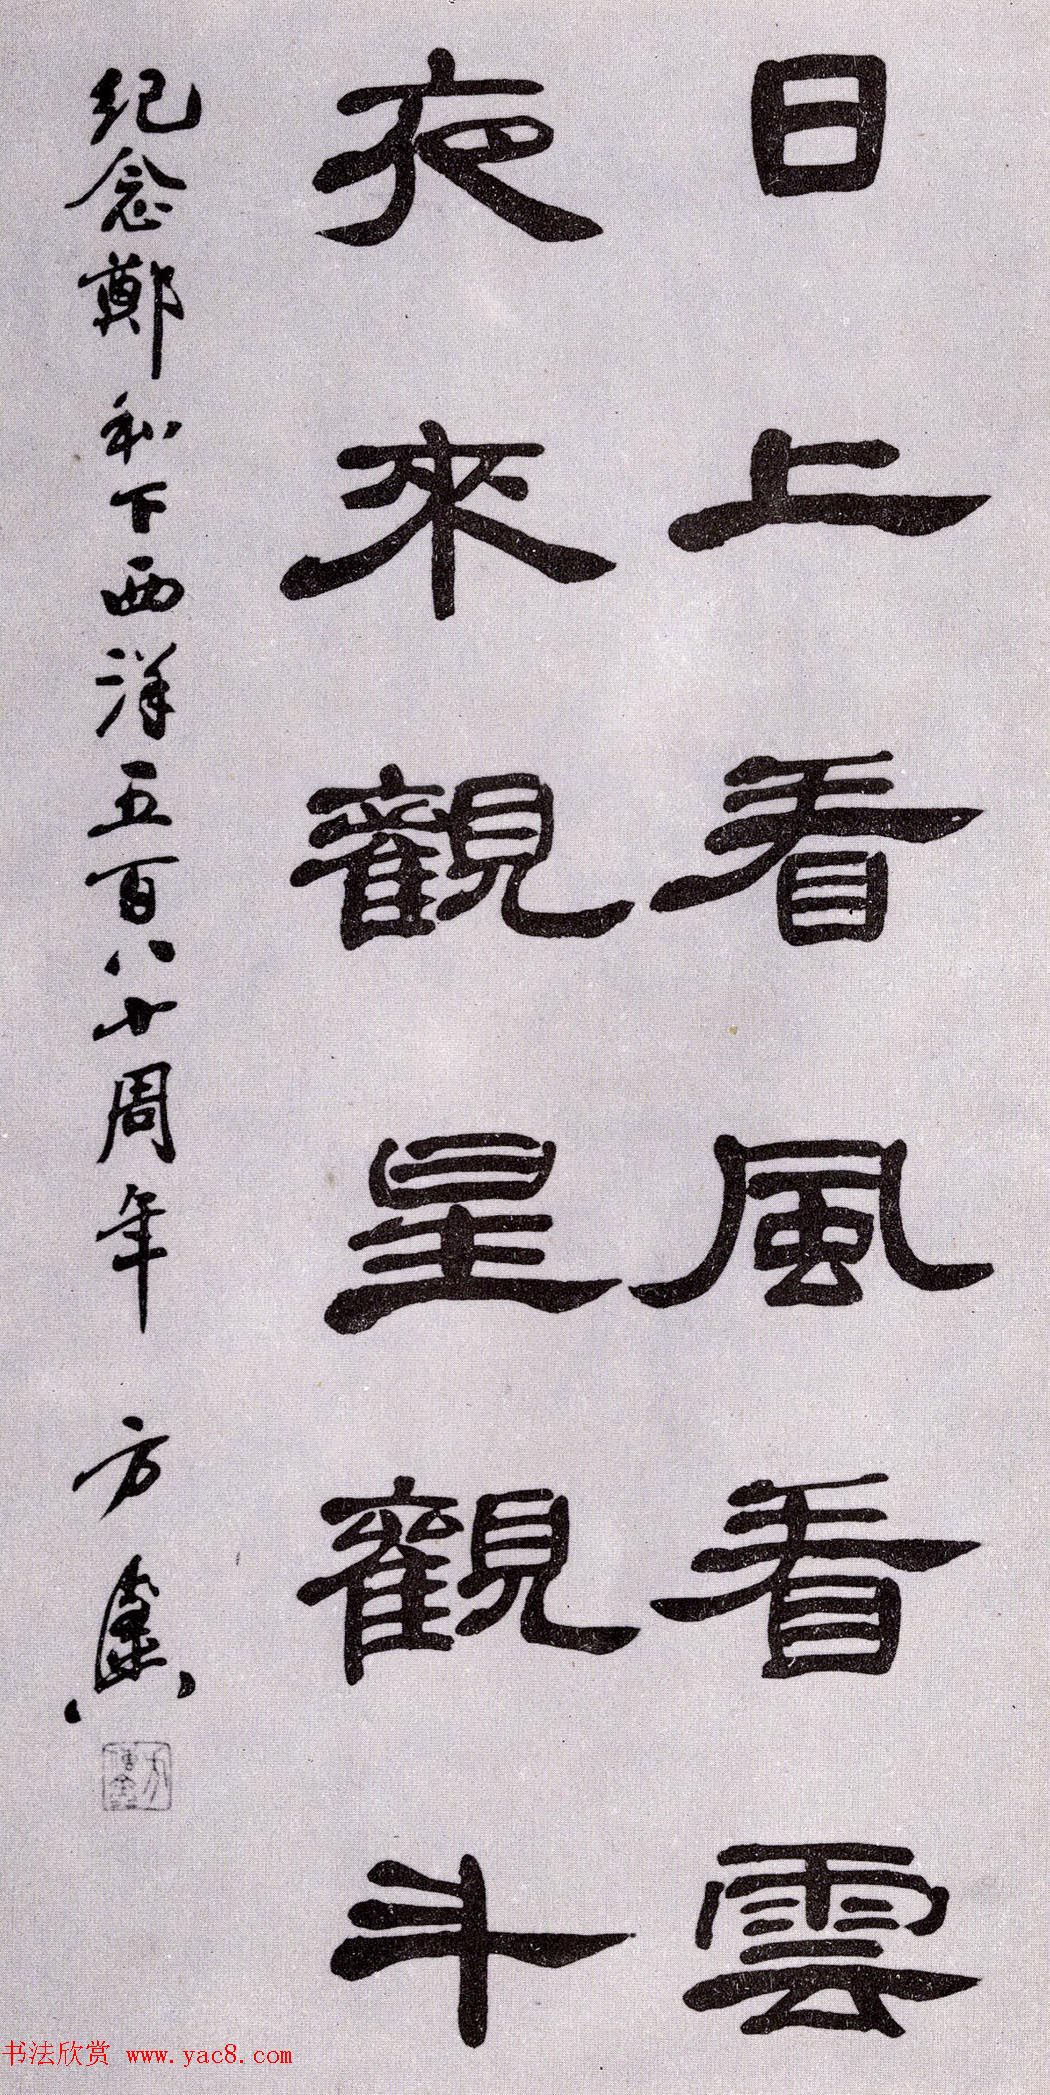 日上看風看雲
夜來觀星觀斗
紀念鄭和下西洋五百八十周年 方
书法欣赏 www.yac8.com